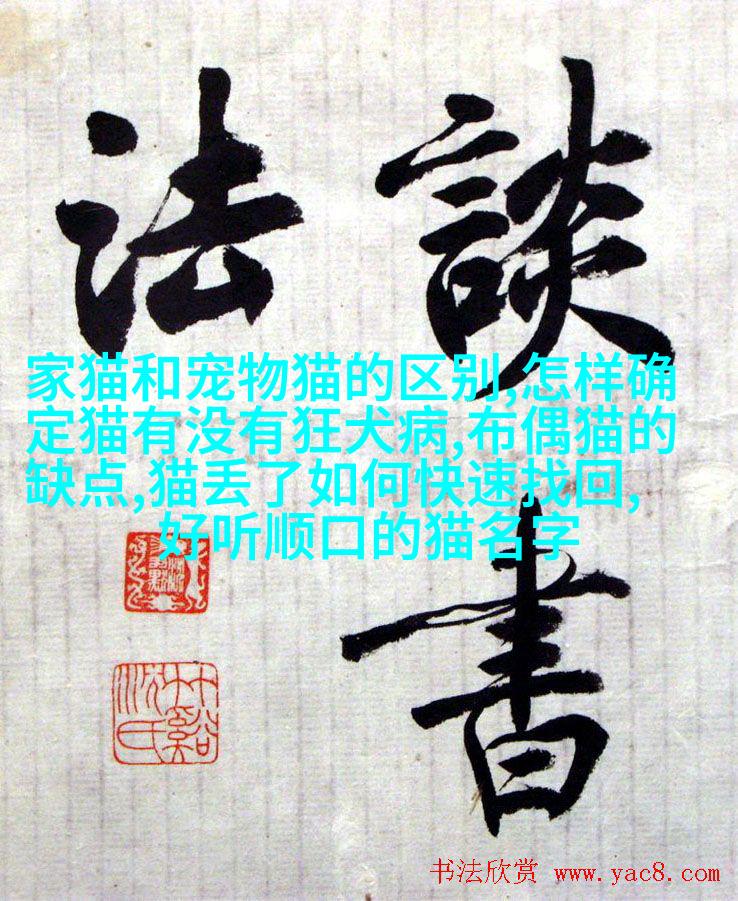 談書
法
家猫和宠物猫的区别,怎样确
定猫有没有狂犬病,布偶猫的
缺点,猫丢了如何快速找回,
好听顺口的猫名字
书法欣赏 www.yac8.com